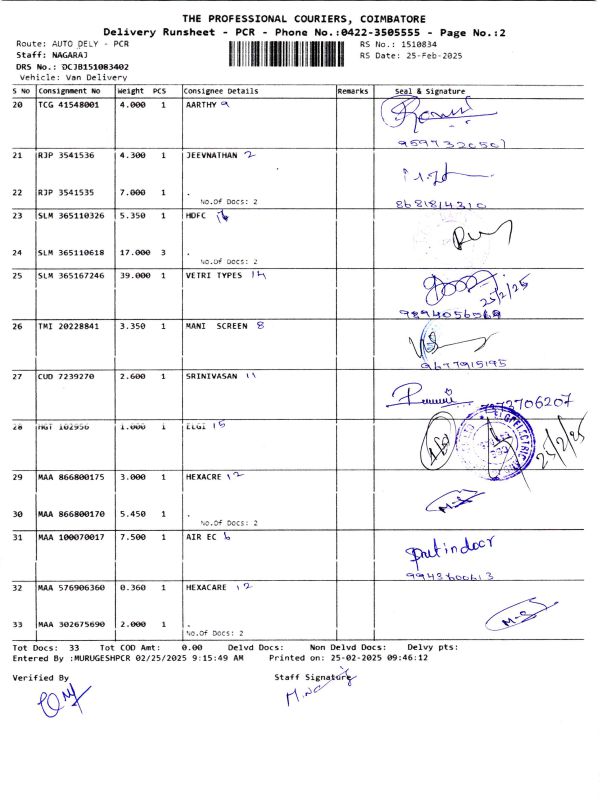 THE PROFESSIONAL COURIERS, COIMBATORE
Delivery Runsheet - PCR - Phone No.:0422-3505555 - Page No.:2
Route: AUTO DELY - PCR RS No.: 1510834
Staff: NAGARAJ RS Date: 25-Feb-2025
DRS No.: DCJB151083402
Vehicle: Van Delivery
S No Consignment No Weight PCS Consignee Details Remarks Seal & Signature
20 TCG 41548001 4.000 1 AARTHY 9
9597320501
21 RJP 3541536 4.300 1 JEEVNATHAN 2
22 RJP 3541535 7.000 1 .
No.Of Docs: 2 8681814310
23 SLM 365110326 5.350 1 HDFC
24 SLM 365110618 17.000 3 .
No.Of Docs: 2
25 SLM 365167246 39.000 1 VETRI TYPES 14
25/2/25
26 TMI 20228841 3.350 1 MANI SCREEN 8
9677915195
27 CUD 7239270 2.600 1 SRINIVASAN 11
7373706207
28 HGT 102956 1.000 1 ELGI 15
25/2/25
29 MAA 866800175 3.000 1 HEXACRE 12
30 MAA 866800170 5.450 1 . M-S
No.Of Docs: 2
31 MAA 100070017 7.500 1 AIR EC 6
9943600613
32 MAA 576906360 0.360 1 HEXACARE 12
33 MAA 302675690 2.000 1 . M-S
No.Of Docs: 2
Tot Docs: 33 Tot COD Amt: 0.00 Delvd Docs: Non Delvd Docs: Delvy pts:
Entered By :MURUGESHPCR 02/25/2025 9:15:49 AM Printed on: 25-02-2025 09:46:12
Verified By Staff Signature